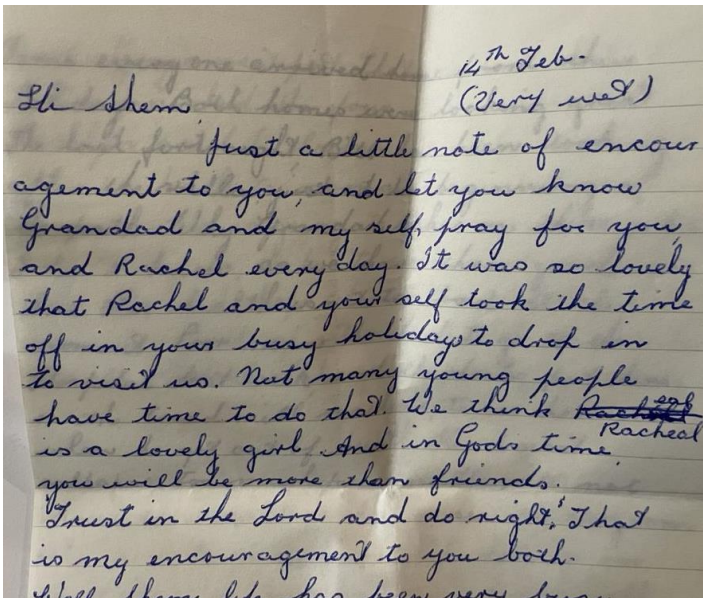 14th Feb.
Hi Shem, (Very wet)
Just a little note of encour
agement to you, and let you know
Grandad and my self, pray for you,
and Rachel every day. It was so lovely
that Rachel and your self took the time
off in your busy holidays to drop in
to visit us. Not many young people
have time to do that. We think Racheal
is a lovely girl. And in Gods time
you will be more than friends.
"Trust in the Lord and do right," That
is my encouragement to you both.
Well Shem life has been very busy